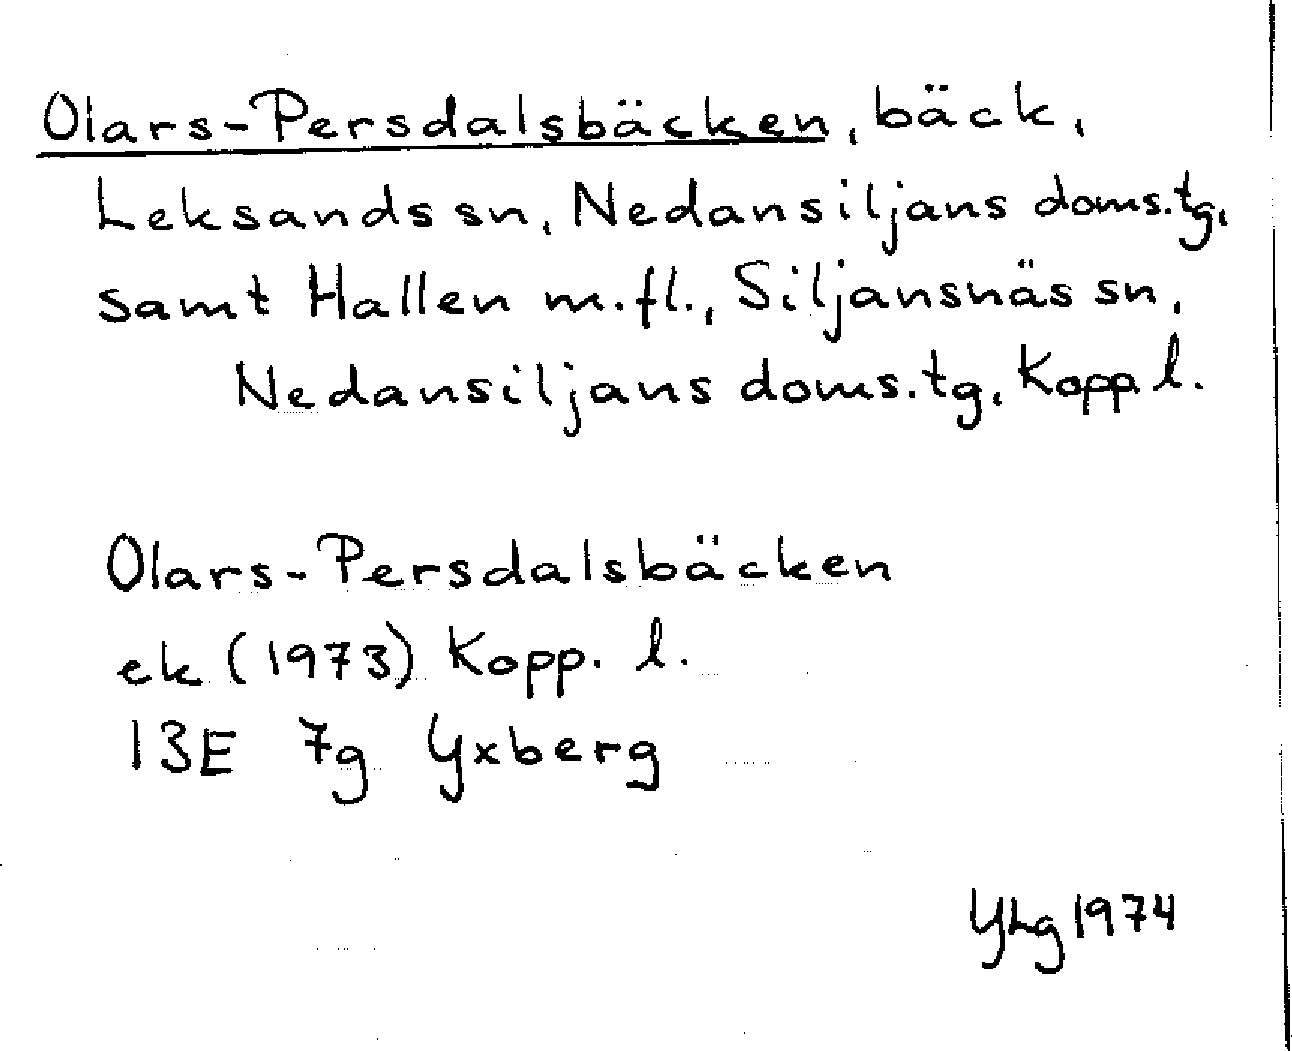 Olars-Persdalsbäcken, bäck,
Leksands sn, Nedansiljans doms.tg,
samt Hallen m.fl., Siljansnäs sn,
Nedansiljans doms.tg, Kopp l.
Olars-Persdalsbäcken
ek (1973) Kopp. l.
13E 7g Yxberg
YLg 1974